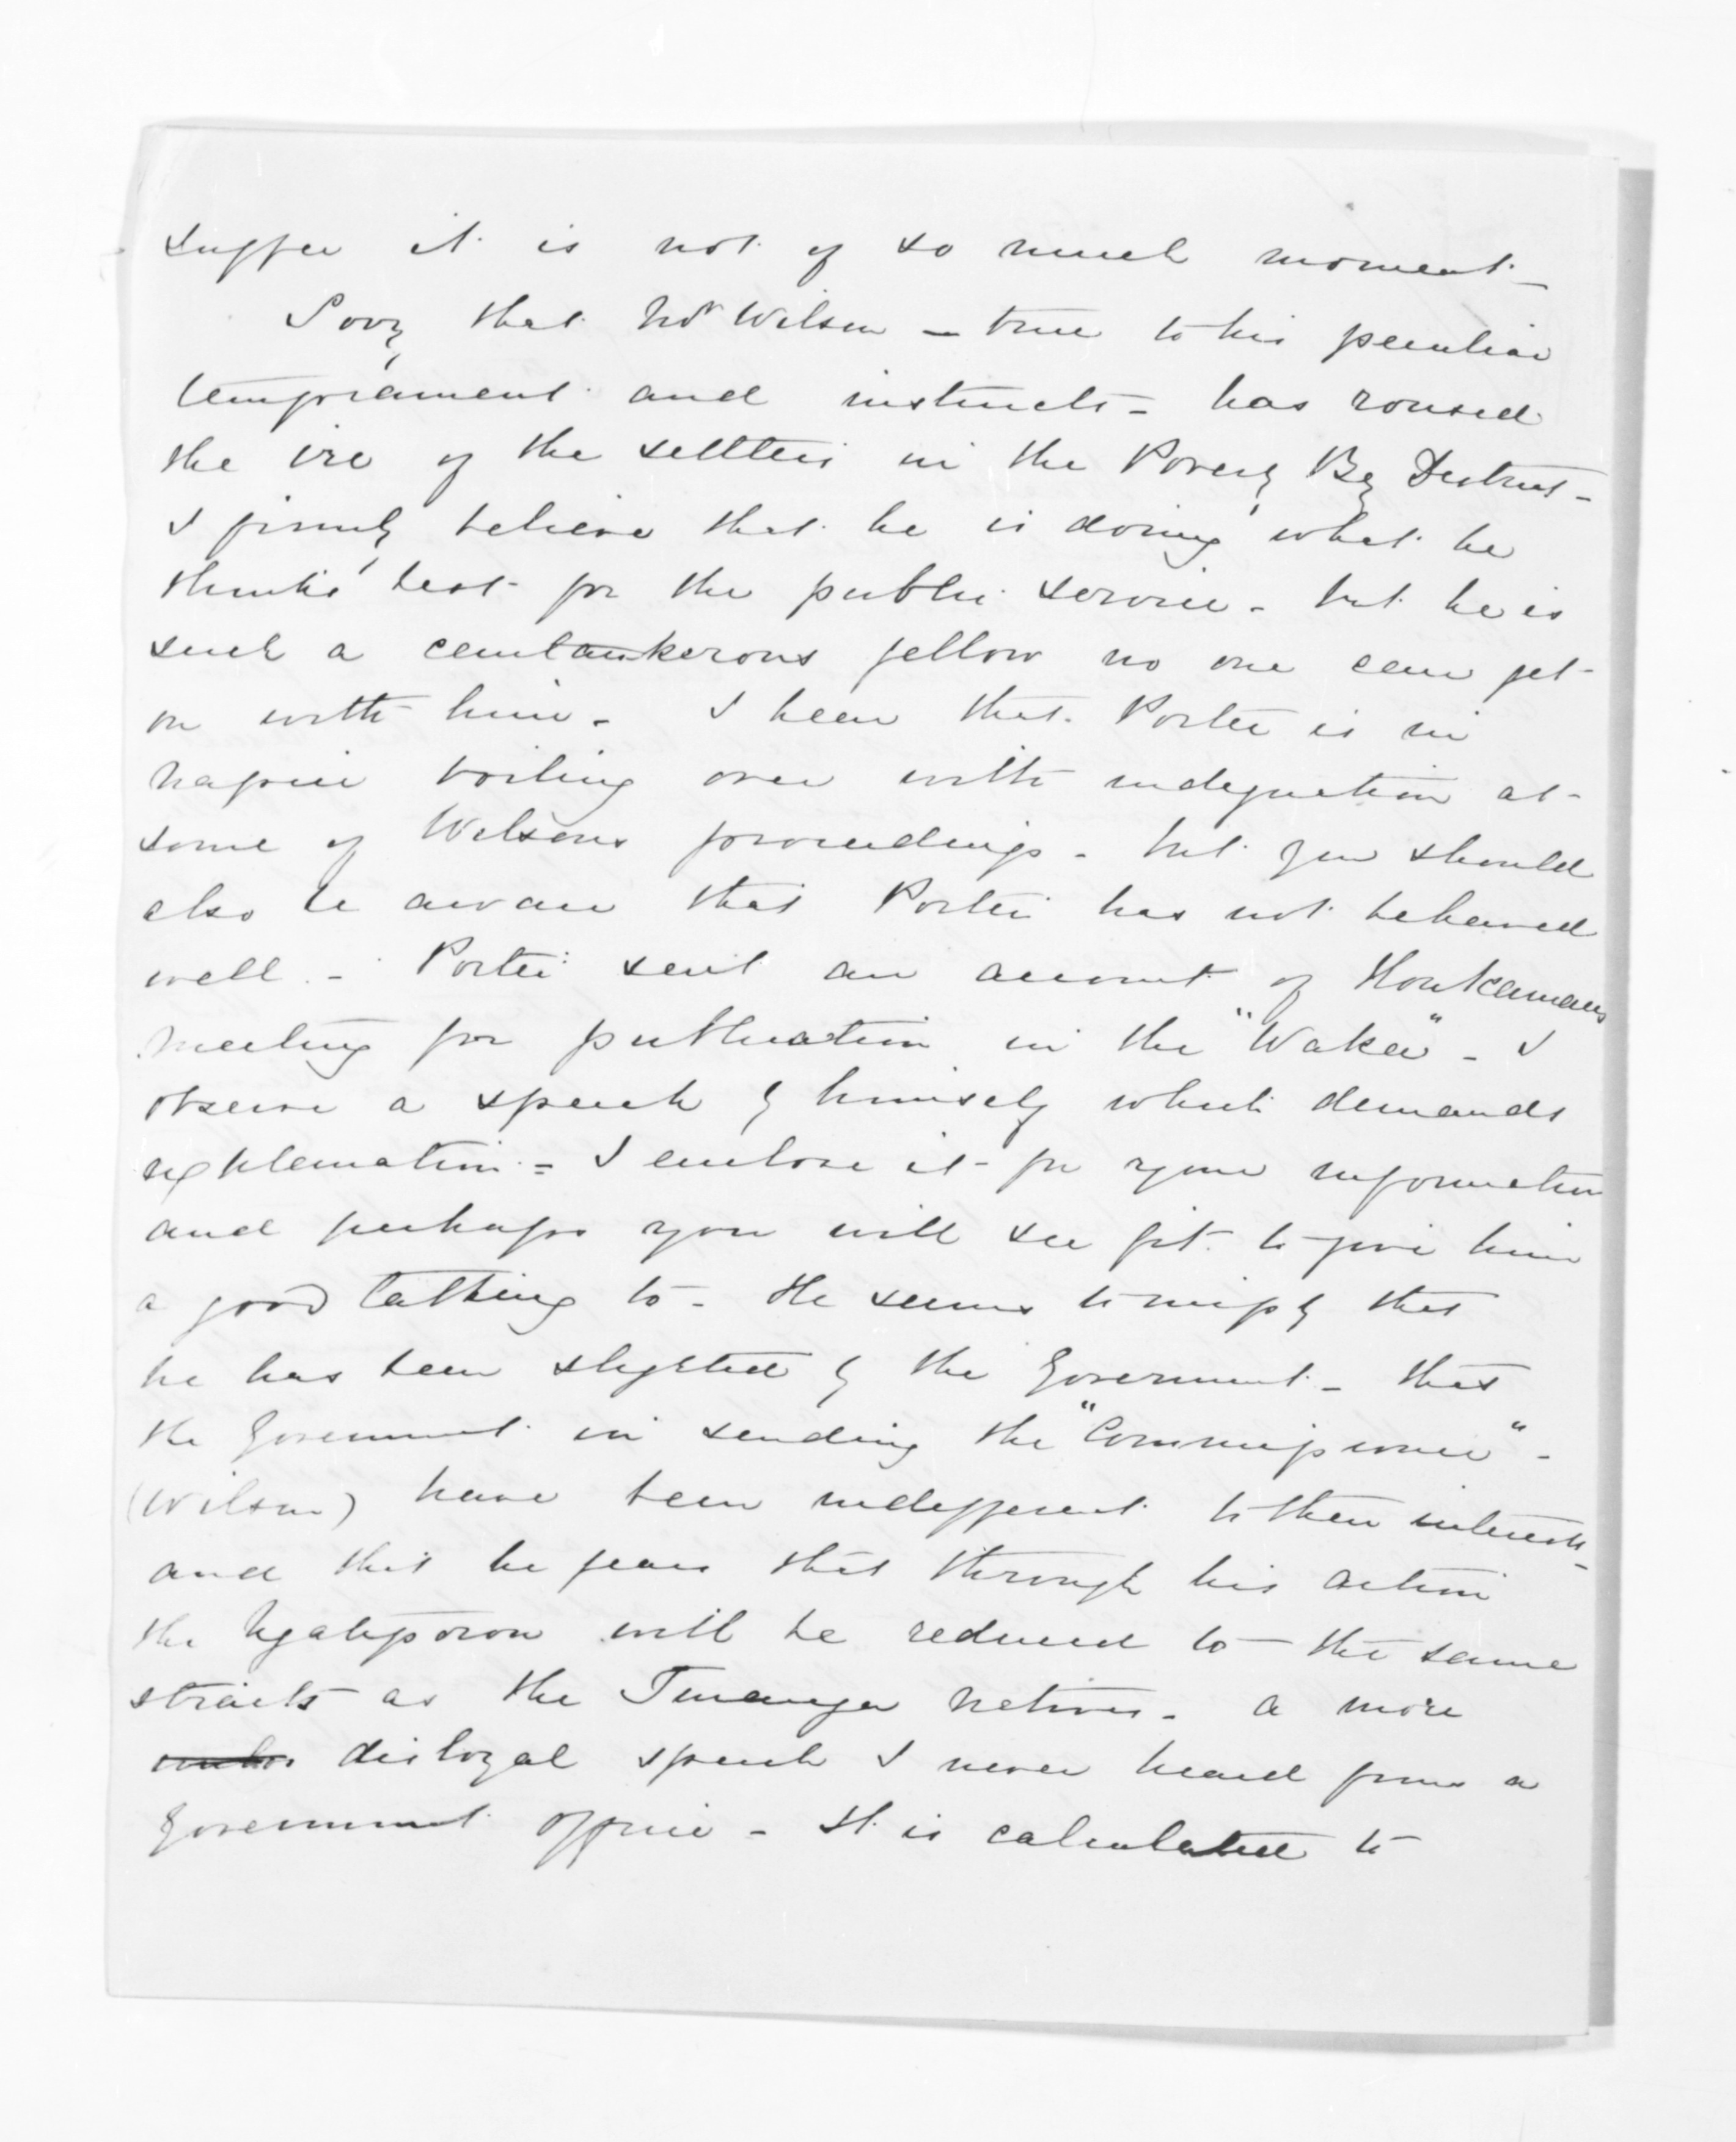 suffer it is not of so much moment -
Sorry that Mr Wilson - true to his peculiar
temprament and instincts - has roused
the ire of the settlers in the Poverty Bay District -
I firmly believe that he is doing what he
thinks best for the public service - but he is
such a cantankerous fellow no one can get
on with him - I hear that Porter is in
Napier boiling over with indignation at
some of Wilsons proceedings - but you should
also be aware that Porter has not behaved
well - Porter sent an account of Houkamaus
meeting for publication in the "Waka" - I
observe a speech by himself which demands
explanation - I enclose it for your information
and perhaps you will see fit to give him
a good talking to - He seems to imply that
he has been slighted by the Government - that
the Government in sending the "Commissioner" -
(Wilson) have been indifferent to their interests -
and that he fears that through his action
the Ngatiporou will be reduced to the same
straits as the Tauranga Natives - a more
disloyal speech I never heard from a
Government officer - It is calculated to